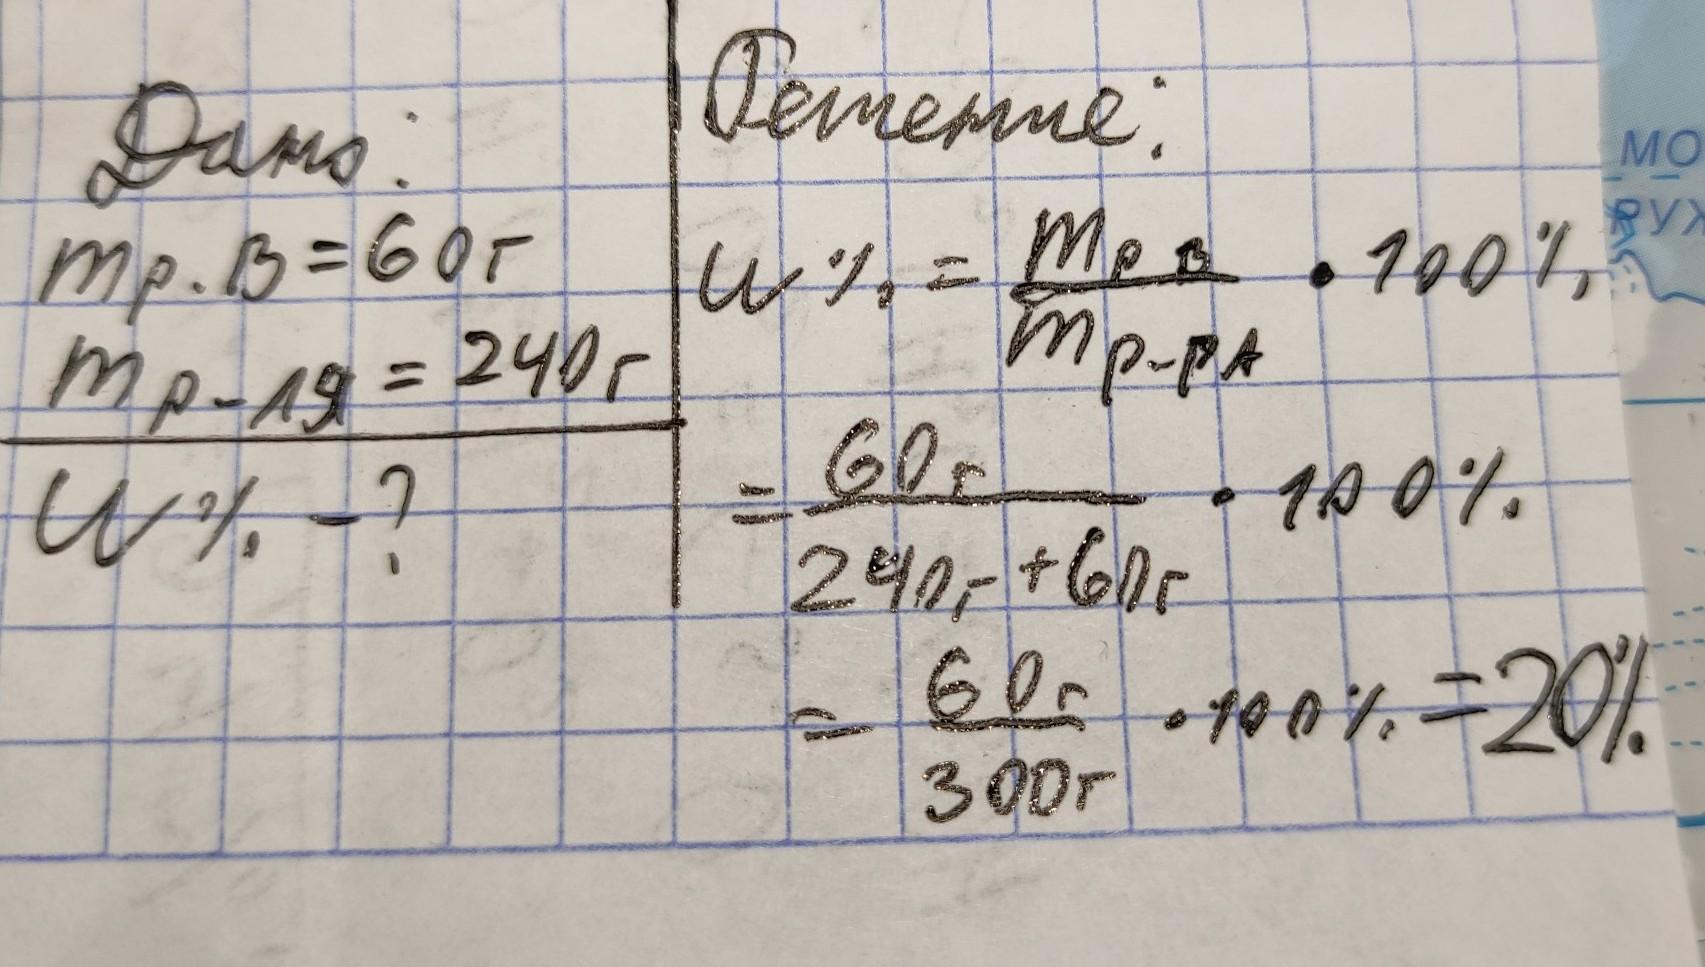 Дано:
mр.в = 60г
mр-ля = 240г
W% - ?
Решение:
W% = mр в / mр-ра · 100%
= 60г / 240г + 60г · 100%
= 60г / 300г · 100% = 20%
МО
РУЖ